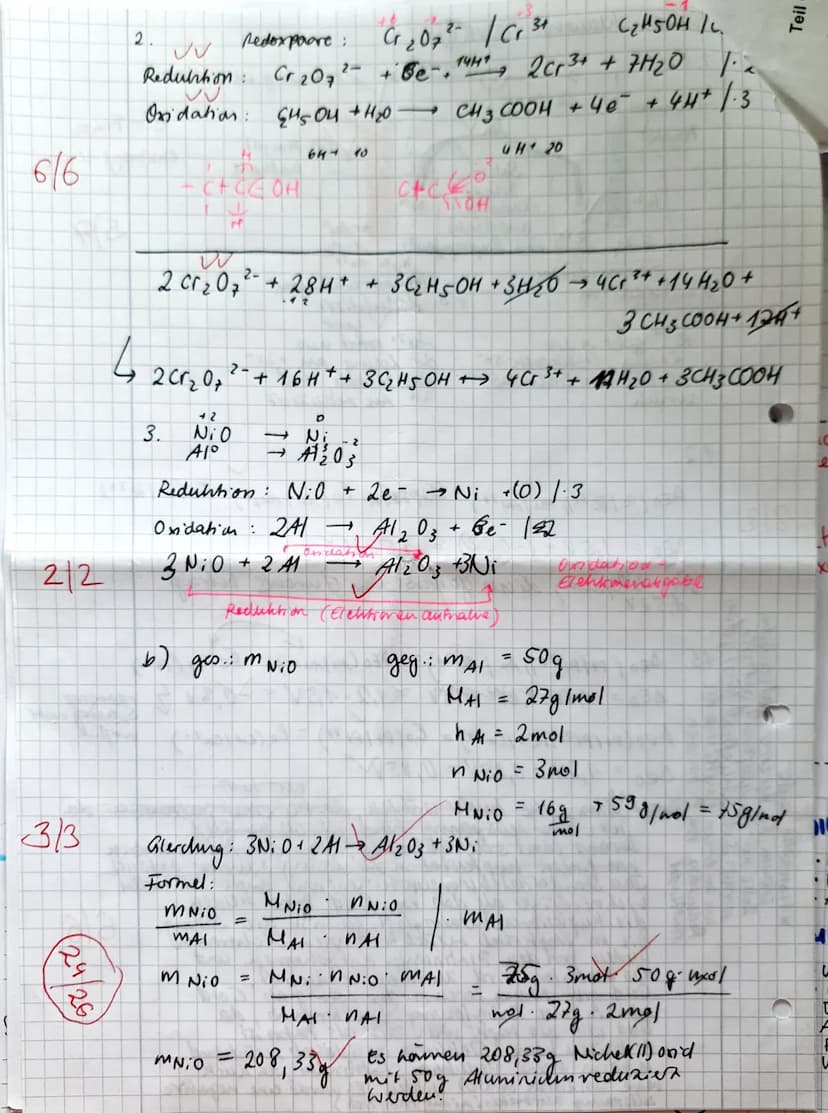 Teil
+6 -2 +3 -1
2. Redoxpaare: Cr₂O₇²⁻ / Cr³⁺ C₂H₅OH /
Reduktion: Cr₂O₇²⁻ + 6e⁻ + 14H⁺ → 2Cr³⁺ + 7H₂O /·2
Oxidation: C₂H₅OH + H₂O → CH₃COOH + 4e⁻ + 4H⁺ /·3
6H+ 1O 4H+ 2O
6/6
H
- C + C OH C + C O
H OH
2Cr₂O₇²⁻ + 28H⁺ + 3C₂H₅OH + 3H₂O → 4Cr³⁺ + 14H₂O +
3CH₃COOH + 12H⁺
↳ 2Cr₂O₇²⁻ + 16H⁺ + 3C₂H₅OH ↔ 4Cr³⁺ + 11H₂O + 3CH₃COOH
+2 0
3. NiO → Ni
+3 -2
Al⁰ → Al₂O₃
Reduktion: NiO + 2e⁻ → Ni + (O) /·3
Oxidation: 2Al → Al₂O₃ + 6e⁻ /
Oxidation
2/2
3NiO + 2Al → Al₂O₃ + 3Ni
Oxidation =
Elektronenabgabe
Reduktion (Elektronenaufnahme)
b) ges.: m NiO geg.: m Al = 50g
M Al = 27g/mol
n Al = 2mol
n NiO = 3mol
M NiO = 16g/mol + 59g/mol = 75g/mol
3/3
Gleichung: 3NiO + 2Al → Al₂O₃ + 3Ni
Formel:
m NiO / m Al = M NiO · n NiO / M Al · n Al | · m Al
24/26
m NiO = M Ni · n NiO · m Al / M Al · n Al = 75g · 3mol · 50g · mol / mol · 27g · 2mol
m NiO = 208,33g Es können 208,33g Nickel(II)oxid
mit 50g Aluminium reduziert
werden.